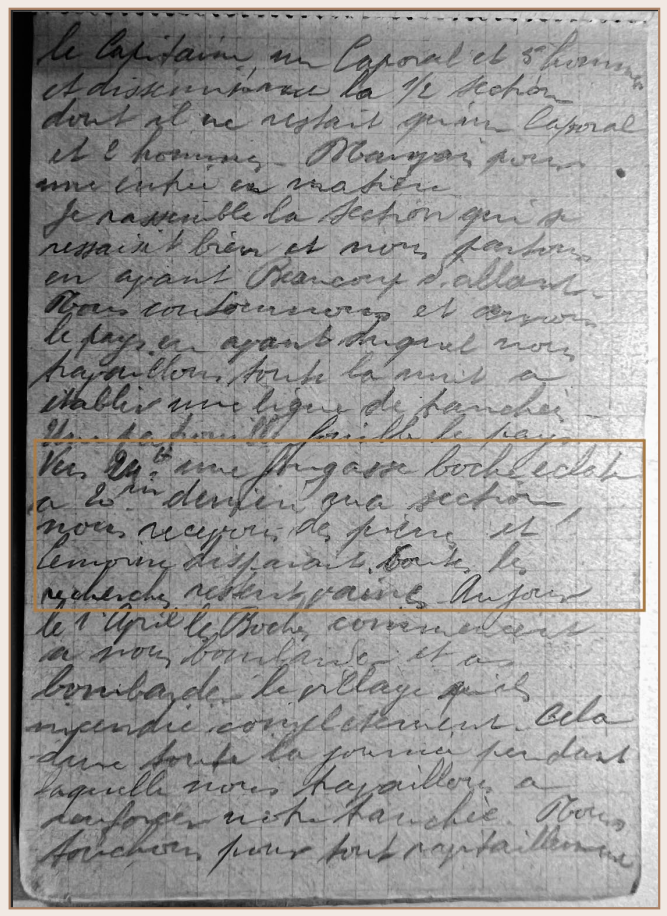 le Capitaine, un Caporal et 5 hommes
et dissemine la 1/2 section
dont il ne restait qu'un Caporal
et 2 hommes - pour
une entrée en matière
Je rassemble la section qui se
ressaisit bien et nous partons
en ayant Beaucoup d'allant.
Nous contournons et
le pays en avant duquel nous
travaillons toute la nuit a
etablir une ligne de tranchée -
Une patrouille fouille le pays
Vers une fougasse boche eclate
a 20 m derrière ma section
nous recevons des pierres et
Lemoine disparait. toutes les
recherches restent vaines Au jour
le 1 Avril les Boches commencent
a nous bombarder et a
bombarder le village qu'ils
incendie completement. Cela
dure toute la journée pendant
laquelle nous travaillons a
renforcer notre tranchée. Nous
touchons pour tout ravitaillement